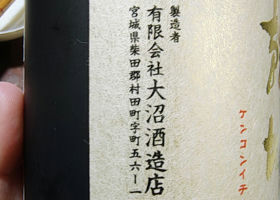 ケンコンイチ
製造者
有限会社大沼酒造店
宮城県柴田郡村田町字町五六ー一